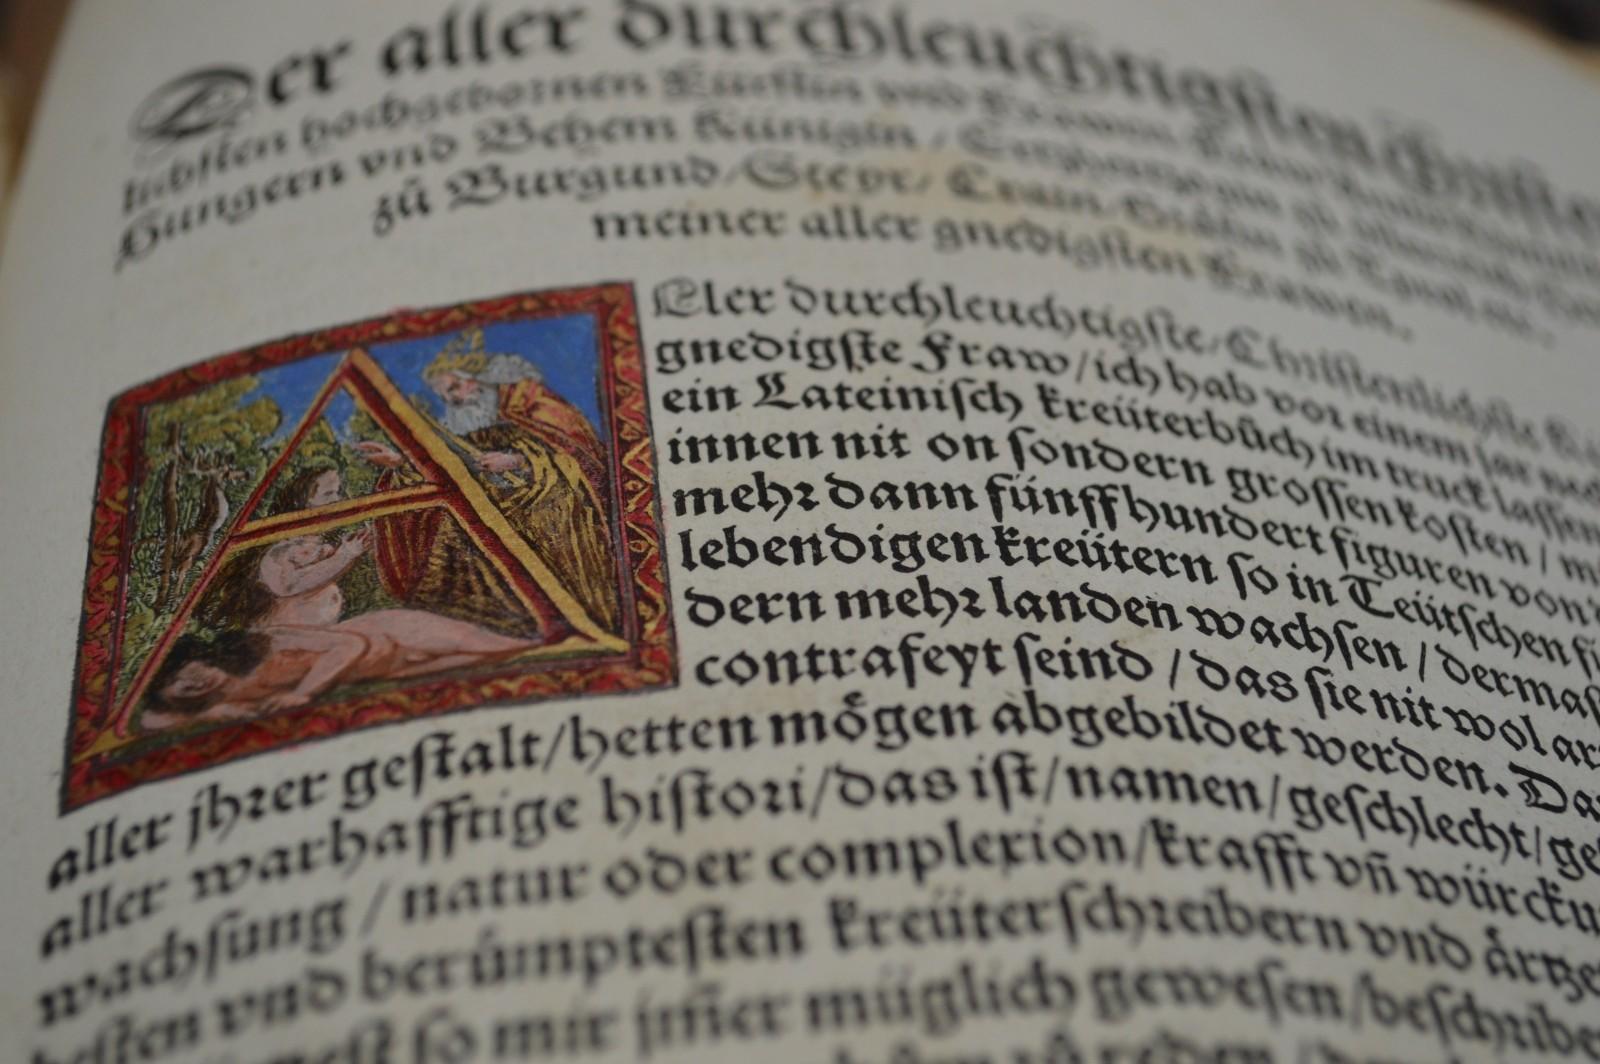 Der aller durchleuchtigſten Chriſte
lichſten hochgebornen Fürſtin vnd Frawen
Hungern vnd Behem Künigin / Ertzhertzogin zů
zů Burgund / Steyr / Crain / Gräfin zů Tyrol, etc.
meiner aller gnedigſten Frawen.
A
Ller durchleuchtigſte / Chriſtenlichſte
gnedigſte Fraw / ich hab vor einem jar
ein Lateiniſch kreüterbůch im truck laſſen
innen nit on ſondern groſſen koſten /
mehr dann fünffhundert figuren von
lebendigen kreütern ſo in Teütſchen
dern mehr landen wachſen / dermaſ
contrafeyt ſeind / das ſie nit wol
aller jhrer geſtalt / hetten mögen abgebildet werden.
aller warhafftige hiſtori / das iſt / namen / geſchlecht /
wachſung / natur oder complexion / krafft vñ würcku
beſten vnd berümpteſten kreüterſchreibern vnd
ſo mir jm̃er müglich geweſen / beſchribe